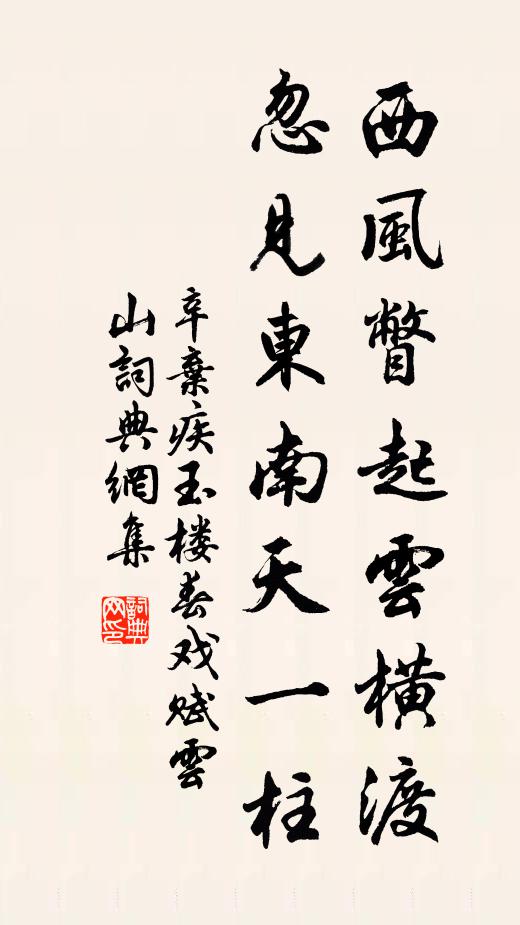 西風瞥起雲橫渡
忽見東南天一柱
辛棄疾玉楼春戏赋雲
山詞典網集
詞典网印